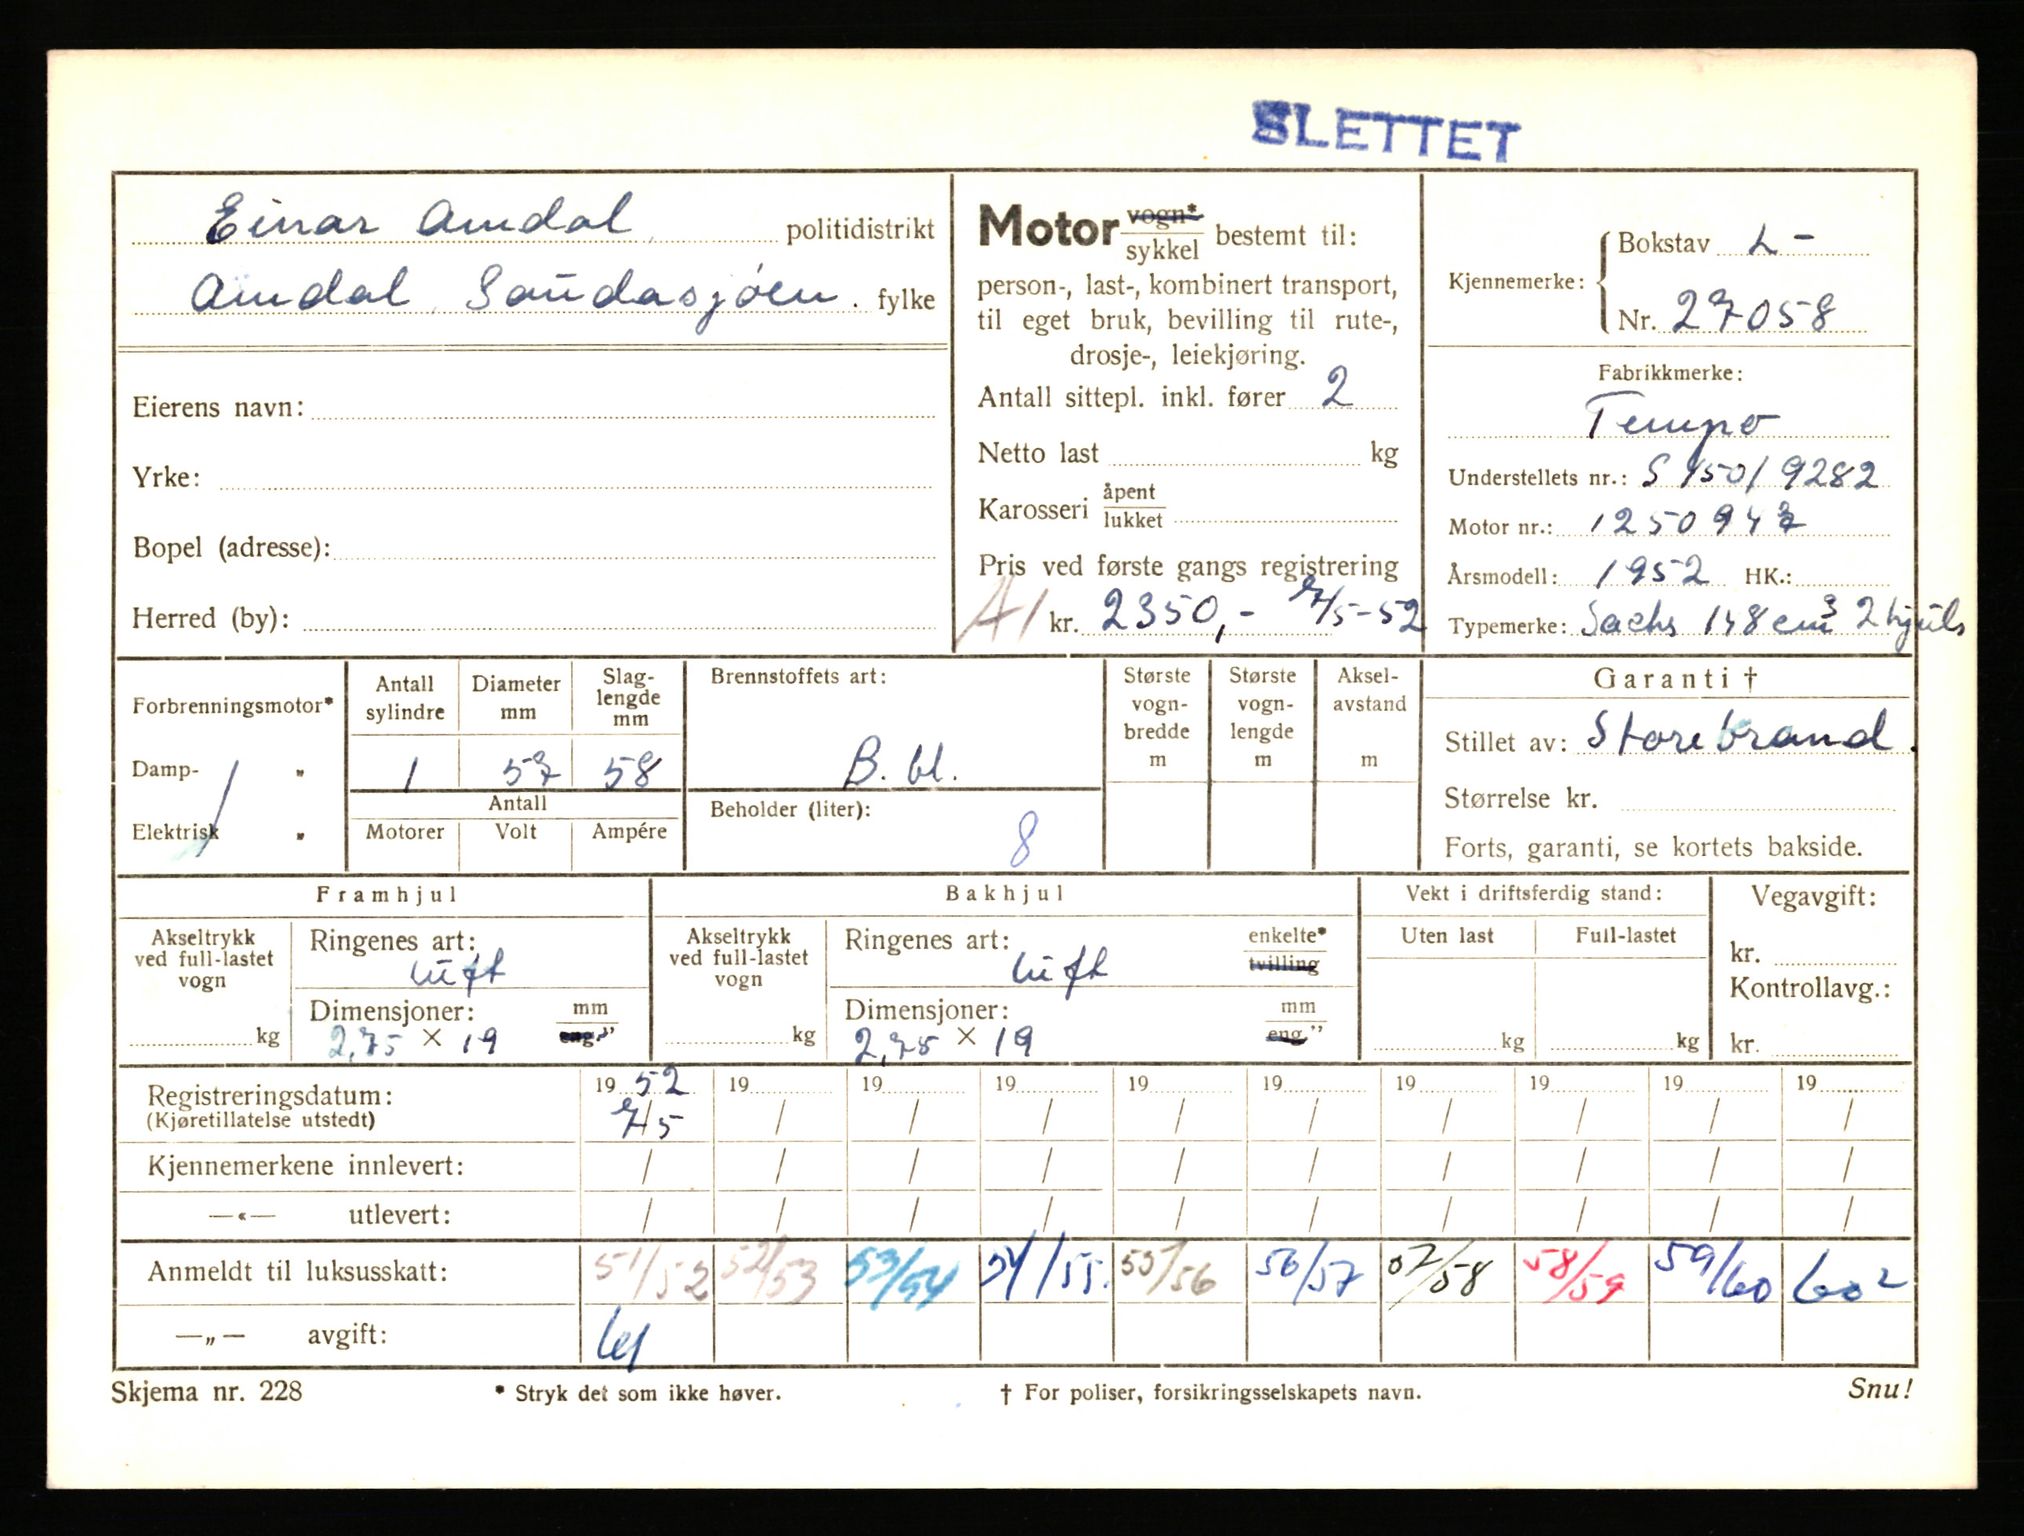 SLETTET
Einar Amdal politidistrikt
Amdal, Saudasjøen. fylke
Eierens navn:
Yrke:
Bopel (adresse):
Herred (by):
Motor vogn* sykkel bestemt til:
person-, last-, kombinert transport,
til eget bruk, bevilling til rute-,
drosje-, leiekjøring.
Antall sittepl. inkl. fører 2
Netto last kg
Karosseri åpent lukket
Pris ved første gangs registrering
A1 kr. 2350,- 7/5-52
Kjennemerke: Bokstav L-
Nr. 27058
Fabrikkmerke:
Tempo
Understellets nr.: S 150/9282
Motor nr.: 1250947
Årsmodell: 1952 HK.:
Typemerke: Sachs 148 cm3 2 hjuls
Forbrenningsmotor*
Damp- "
Elektrisk "
Antall sylindre
Diameter mm
Slag-lengde mm
1 57 58
Antall
Motorer Volt Ampére
Brennstoffets art:
B. bl.
Beholder (liter):
8
Største vogn-bredde m
Største vogn-lengde m
Aksel-avstand m
Garanti †
Stillet av: Storebrand.
Størrelse kr.
Forts, garanti, se kortets bakside.
Framhjul
Akseltrykk ved full-lastet vogn
kg
Ringenes art:
luft
Dimensjoner: mm eng."
2,75 × 19
Bakhjul
Akseltrykk ved full-lastet vogn
kg
Ringenes art: enkelte* tvilling
luft
Dimensjoner: mm eng."
2,75 × 19
Vekt i driftsferdig stand:
Uten last Full-lastet
kg kg
Vegavgift:
kr.
Kontrollavg.:
kr.
Registreringsdatum: 19 52 19 19 19 19 19 19 19 19 19
(Kjøretillatelse utstedt) 7/5 / / / / / / / / /
Kjennemerkene innlevert: / / / / / / / / / /
—«— utlevert: / / / / / / / / / /
Anmeldt til luksusskatt: 51/52 52/53 53/54 54/55. 55/56 56/57 57/58 58/59 59/60 60²
—„— avgift: 61
Skjema nr. 228 * Stryk det som ikke høver. † For poliser, forsikringsselskapets navn. Snu!